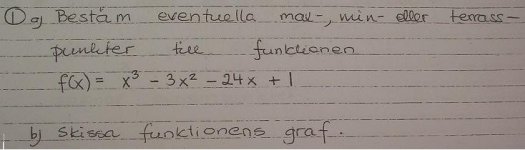 ① a) Bestäm eventuella max-, min- eller terrass-
punkter till funktionen
f(x) = x³ - 3x² - 24x + 1
b) skissa funktionens graf.